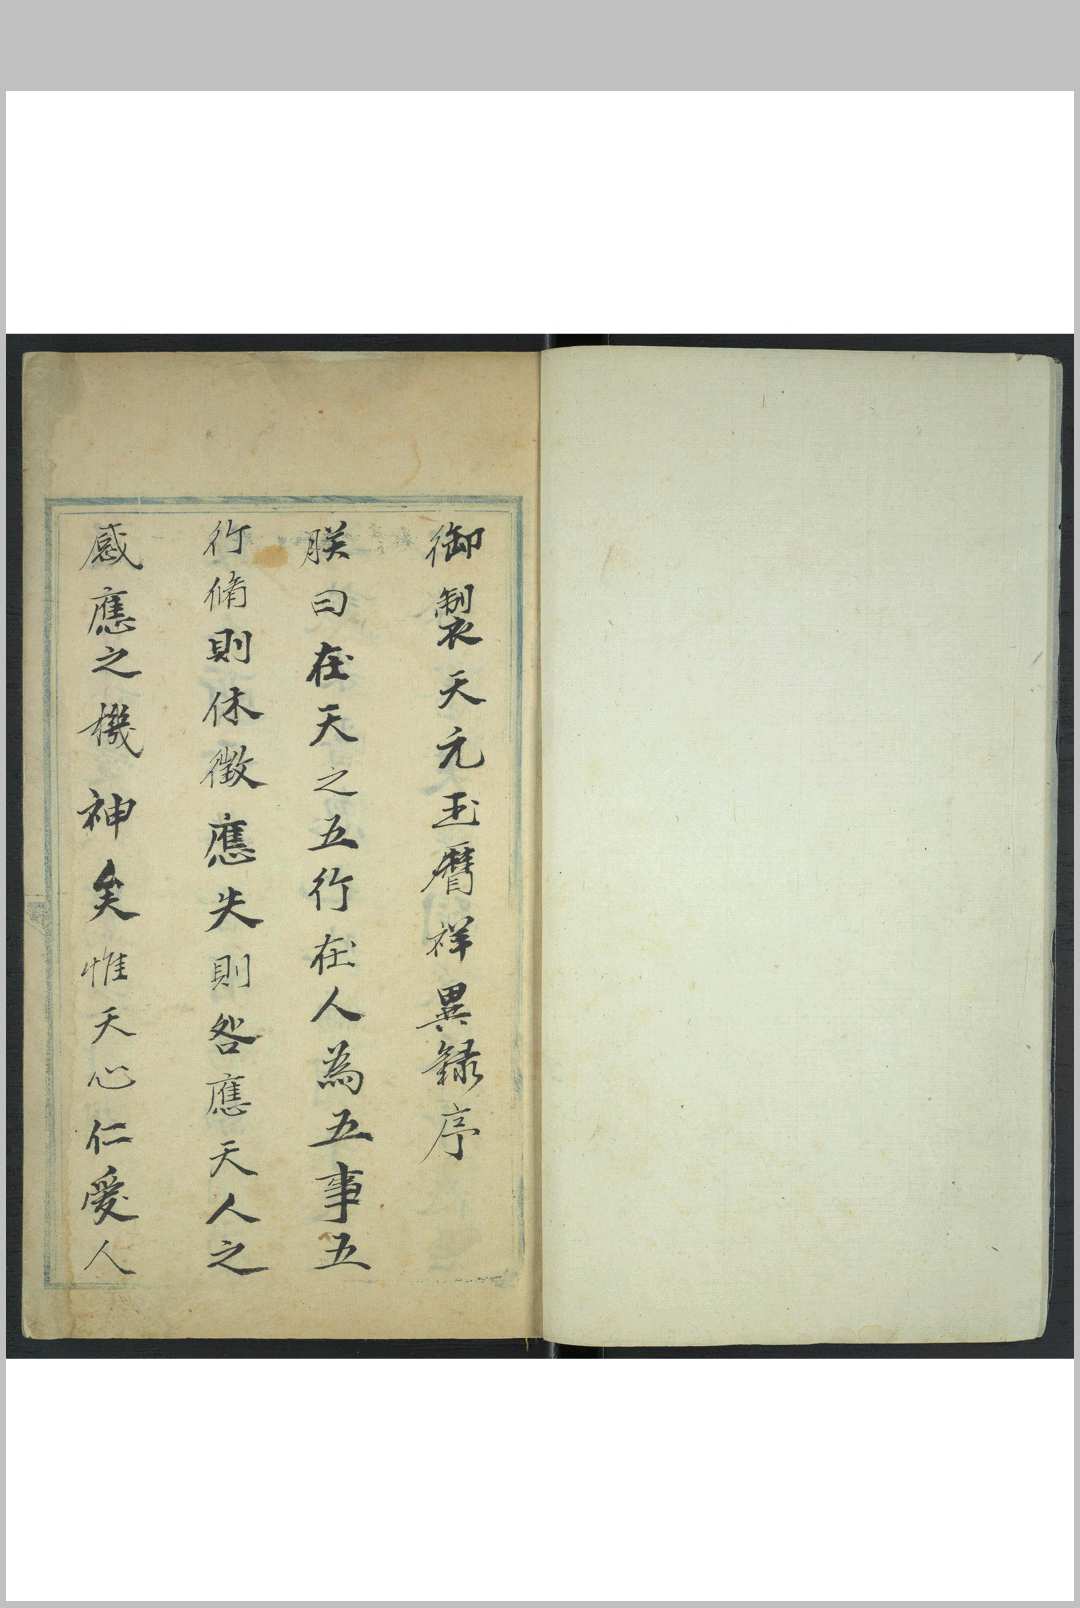 御製天元玉曆祥異錄序
朕曰在天之五行在人為五事五
行脩則休徵應失則咎應天人之
感應之機神矣惟天心仁愛人